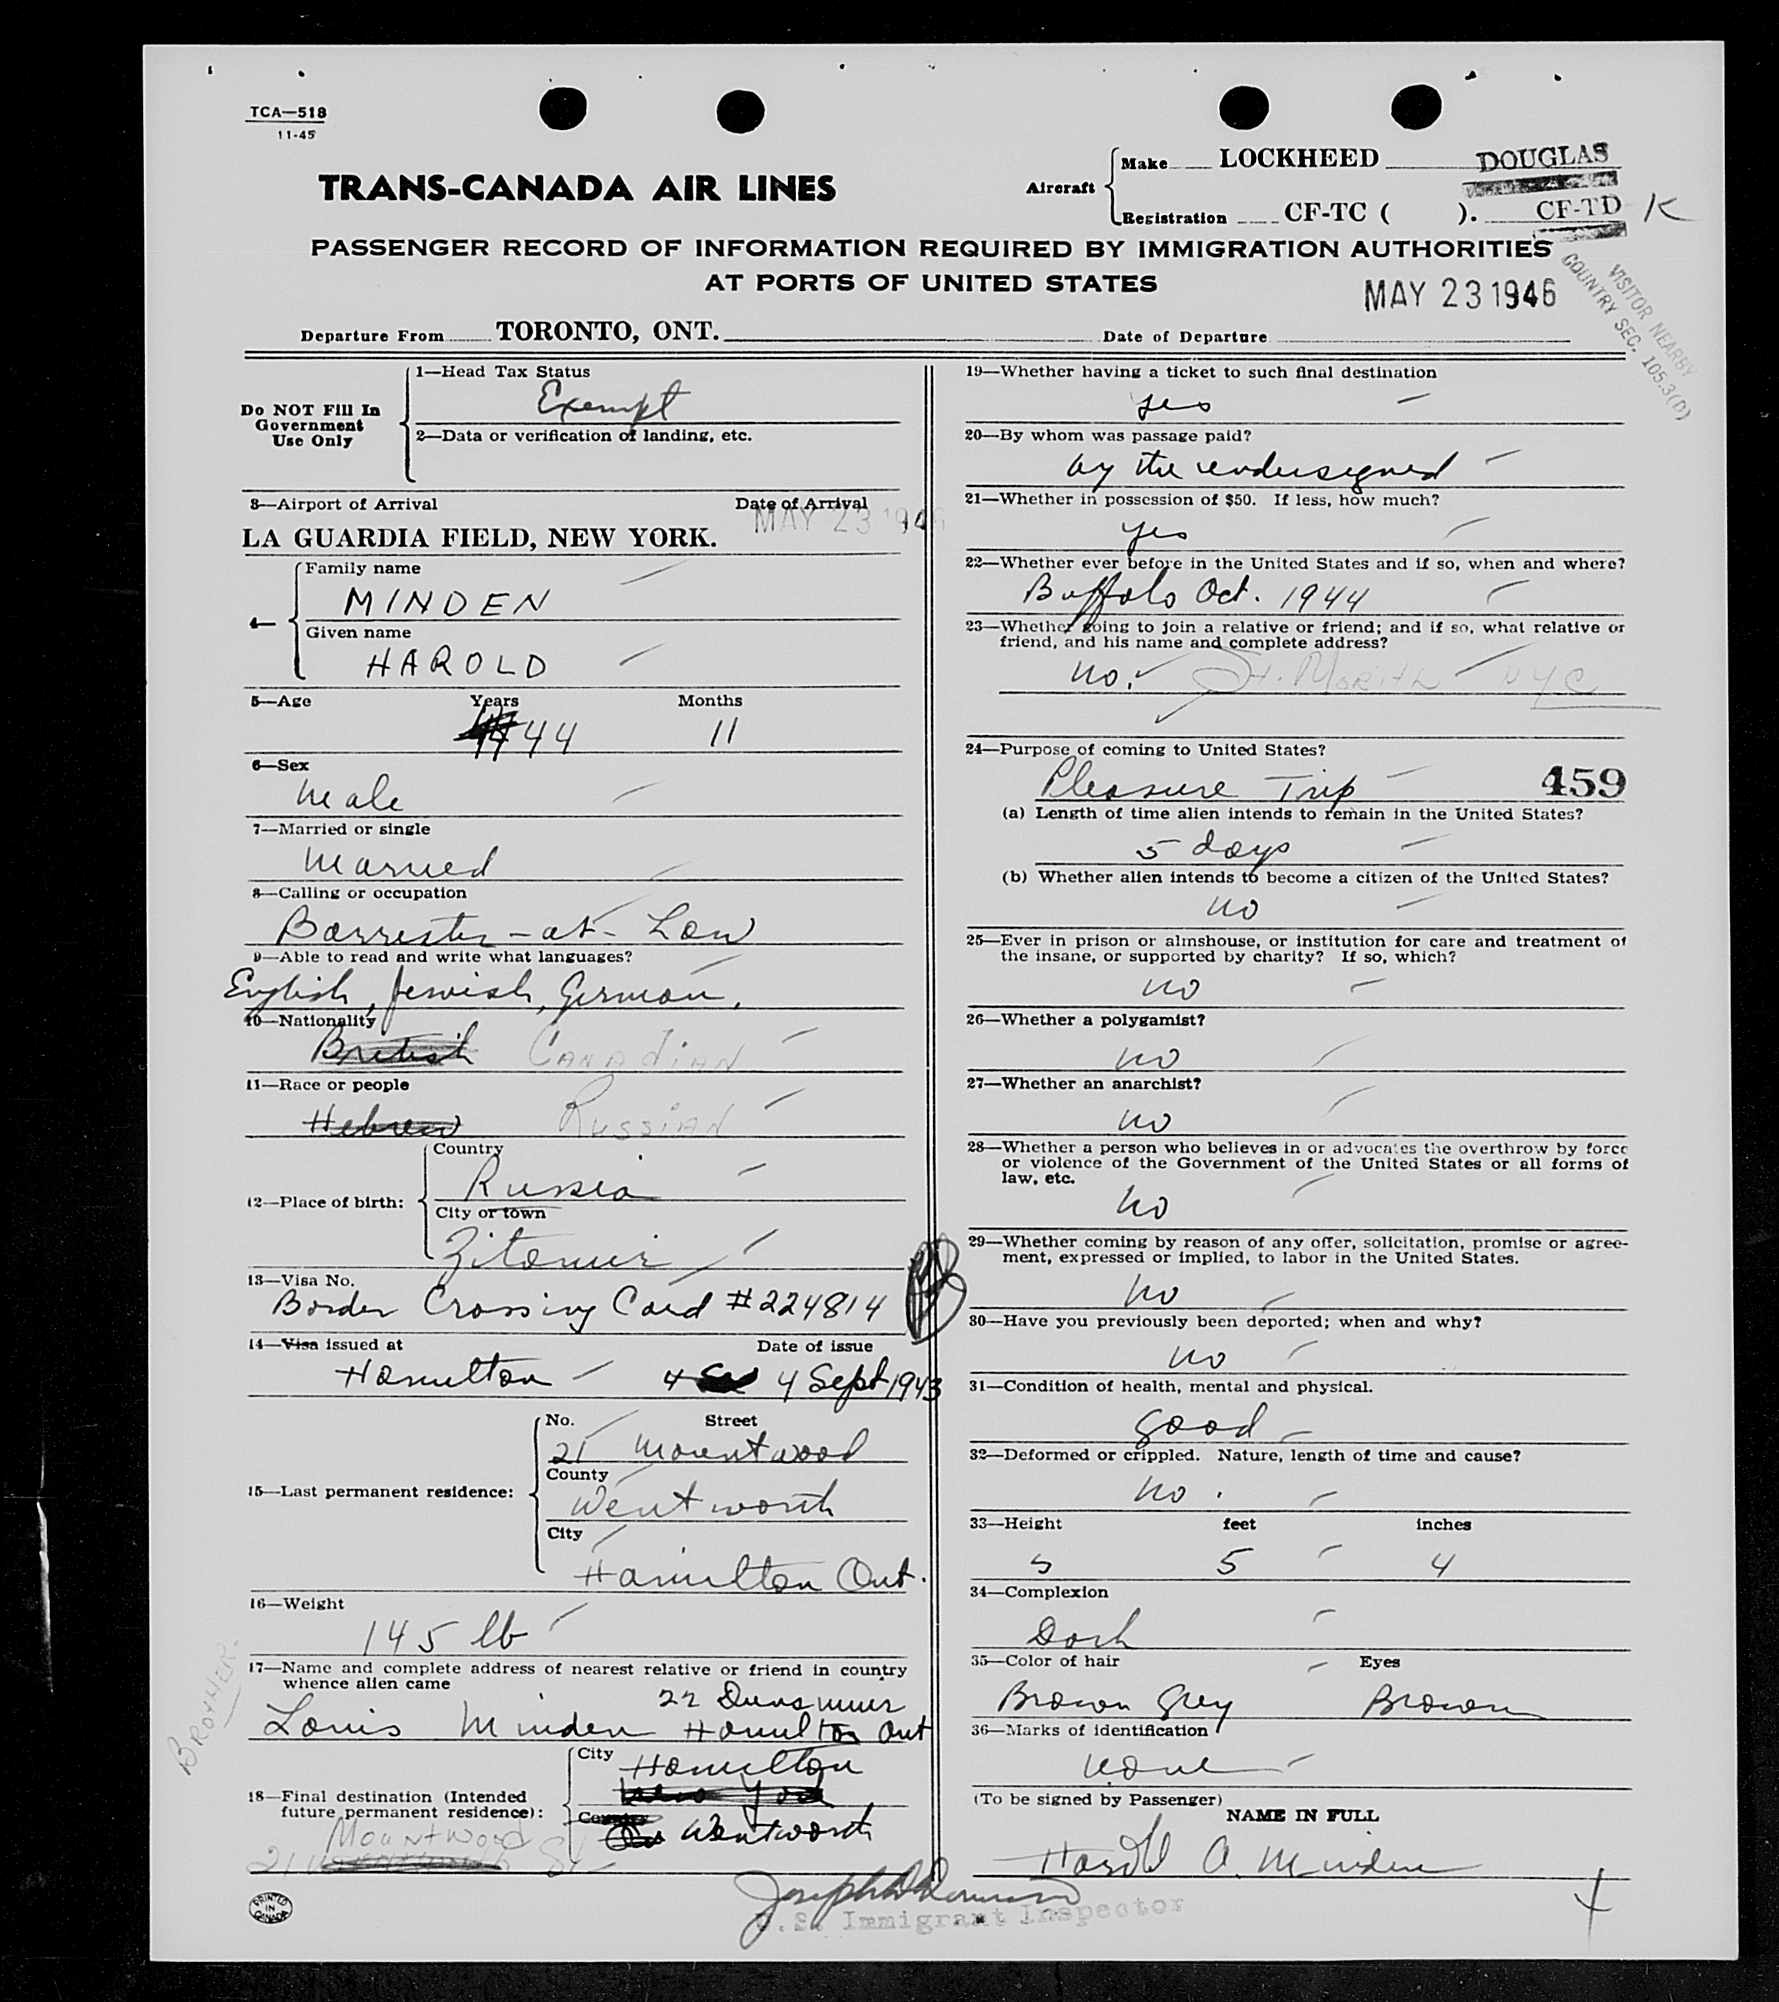 TCA—518
11-45
TRANS-CANADA AIR LINES
Aircraft
Make LOCKHEED DOUGLAS
Registration CF-TC ( ). CF-TD K
PASSENGER RECORD OF INFORMATION REQUIRED BY IMMIGRATION AUTHORITIES
AT PORTS OF UNITED STATES
MAY 23 1946
VISITOR NEARBY
COUNTRY SEC. 105.3(D)
Departure From TORONTO, ONT. Date of Departure
Do NOT Fill In
Government
Use Only
1—Head Tax Status
Exempt
2—Data or verification of landing, etc.
3—Airport of Arrival Date of Arrival
MAY 23 1946
LA GUARDIA FIELD, NEW YORK.
4—
Family name
MINDEN
Given name
HAROLD
5—Age Years Months
44 11
6—Sex
Male
7—Married or single
Married
8—Calling or occupation
Barrester-at-Law
9—Able to read and write what languages?
English, Jewish, German,
10—Nationality
British CANADIAN
11—Race or people
Hebrew RUSSIAN
12—Place of birth:
Country
Russia
City or town
Zitomir
13—Visa No.
Border Crossing Card #224814
14—Visa issued at Date of issue
Hamilton 4 4 Sept 1943
15—Last permanent residence:
No. Street
21 Mountwood
County
Wentworth
City
Hamilton Ont.
16—Weight
145 lb
17—Name and complete address of nearest relative or friend in country
whence alien came
BROTHER.
22 Dunsmuir
Louis Minden Hamilton Ont
18—Final destination (Intended
future permanent residence):
City
Hamilton
New York
County
Wentworth
MOUNTWOOD
21 St
PRINTED
IN
CANADA
19—Whether having a ticket to such final destination
yes
20—By whom was passage paid?
by the undersigned
21—Whether in possession of $50. If less, how much?
yes
22—Whether ever before in the United States and if so, when and where?
Buffalo Oct. 1944
23—Whether going to join a relative or friend; and if so, what relative or
friend, and his name and complete address?
no. St. MORITZ NYC
24—Purpose of coming to United States?
Pleasure Trip 459
(a) Length of time alien intends to remain in the United States?
5 days
(b) Whether alien intends to become a citizen of the United States?
no
25—Ever in prison or almshouse, or institution for care and treatment of
the insane, or supported by charity? If so, which?
no
26—Whether a polygamist?
no
27—Whether an anarchist?
no
28—Whether a person who believes in or advocates the overthrow by force
or violence of the Government of the United States or all forms of
law, etc.
no
29—Whether coming by reason of any offer, solicitation, promise or agree-
ment, expressed or implied, to labor in the United States.
no
30—Have you previously been deported; when and why?
no
31—Condition of health, mental and physical.
good
32—Deformed or crippled. Nature, length of time and cause?
no.
33—Height feet inches
5 5 4
34—Complexion
Dark
35—Color of hair Eyes
Brown Grey Brown
36—Marks of identification
none
(To be signed by Passenger)
NAME IN FULL
Harold A. Minden
U.S. Immigrant Inspector